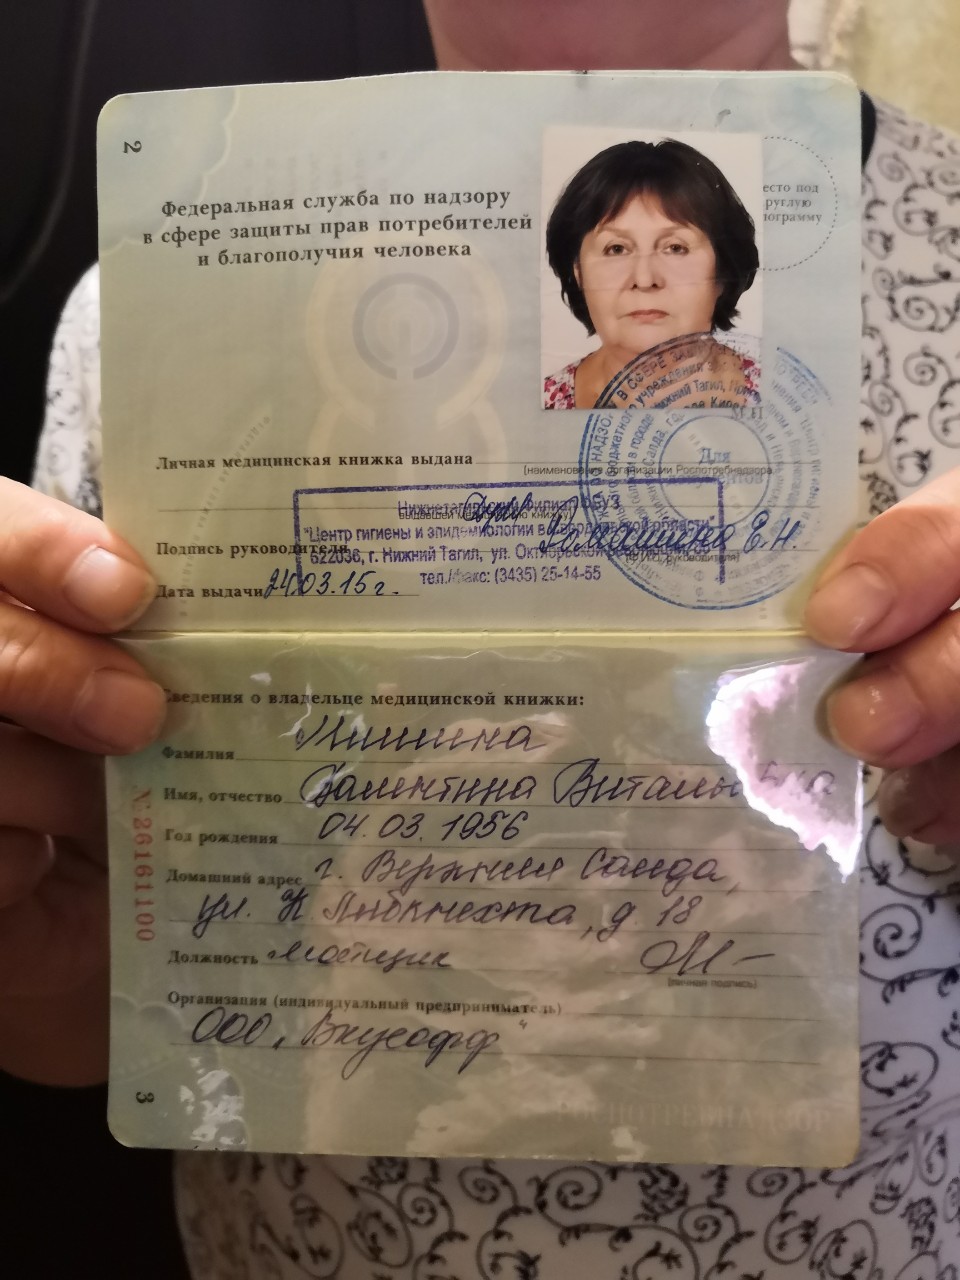 2
Федеральная служба по надзору
в сфере защиты прав потребителей
и благополучия человека
место под
круглую
голограмму
М.П.
Личная медицинская книжка выдана
(наименование организации Роспотребнадзора,
выдавшей медицинскую книжку)
Нижнетагильский филиал ФБУЗ
"Центр гигиены и эпидемиологии в Свердловской области"
622036, г. Нижний Тагил, ул. Октябрьской революции,
тел./факс: (3435) 25-14-55
Подпись руководителя Е.Н.
(Ф.И.О. руководителя)
Дата выдачи 24.03.15г.
Для
документов
Сведения о владельце медицинской книжки:
Фамилия
Имя, отчество Валентина Витальевна
Год рождения 04.03.1956
Домашний адрес г. Верхняя Салда,
ул. К. Либкнехта, д. 18
Должность
(личная подпись)
Организация (индивидуальный предприниматель)
ООО „Вкусофф"
№ 26161100
3
РОСПОТРЕБНАДЗОР